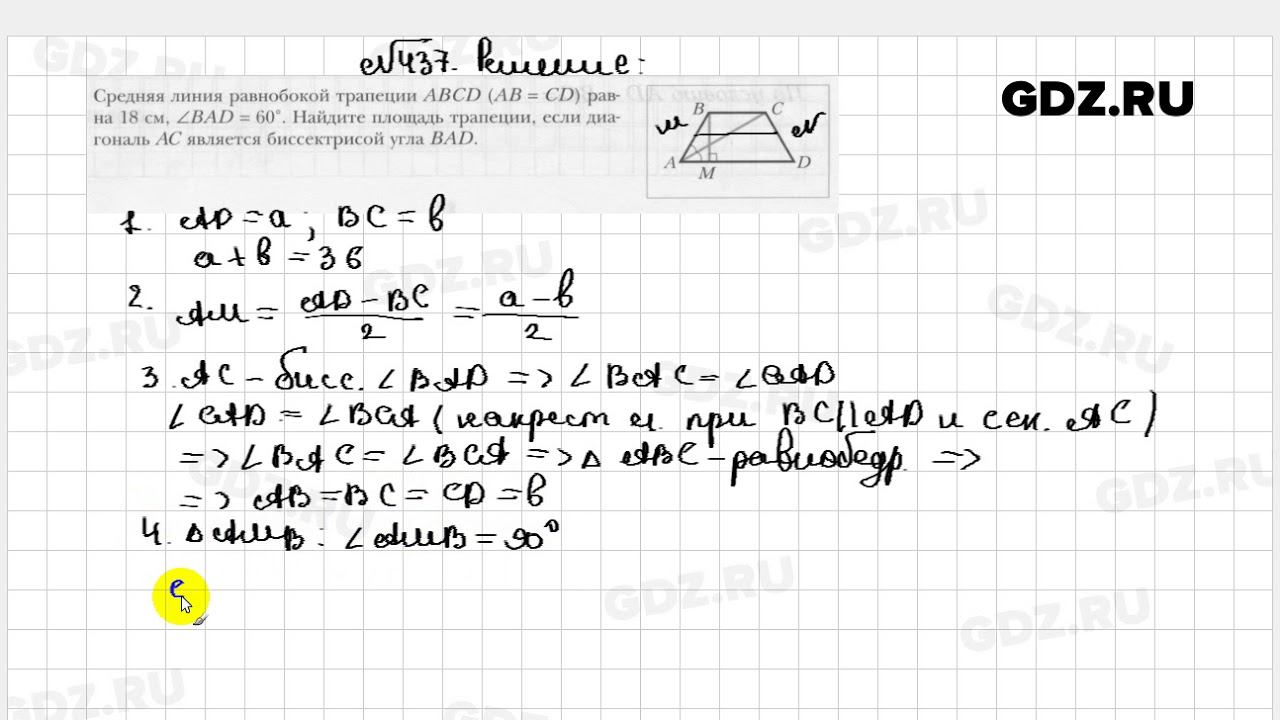 №437. Решение:
GDZ.RU
Средняя линия равнобокой трапеции ABCD (AB = CD) рав-
на 18 см, ∠BAD = 60°. Найдите площадь трапеции, если диа-
гональ AC является биссектрисой угла BAD.
B C
M N
A M D
1. AD = a ; BC = b
a + b = 36
2. AM = (AD − BC)/2 = (a − b)/2
3. AC – бисс. ∠BAD => ∠BAC = ∠CAD
∠CAD = ∠BCA (накрест л. при BC||AD и сек. AC)
=> ∠BAC = ∠BCA => △ABC – равнобедр. =>
=> AB = BC = CD = b
4. △AMB : ∠AMB = 90°